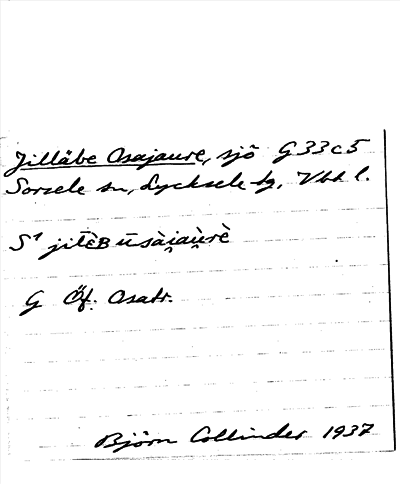 Jilläbe Osajaure, sjö G33c5
Sorsele sn, Lycksele tg, Vbtt l.
S¹ jilèB ūsài̯au̯rè
G Öf. Osatr.
Björn Collinder 1937